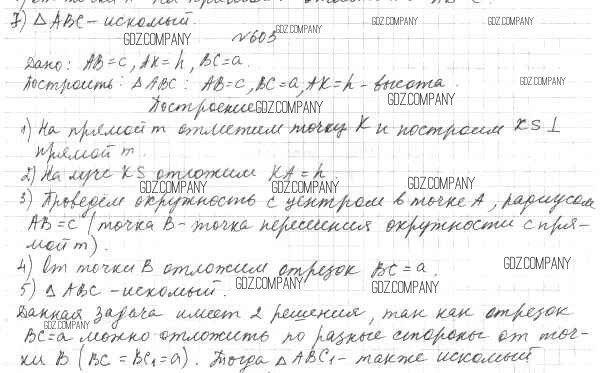 7) △ABC – искомый.
№603
Дано: AB=c, AK=h, BC=a.
Построить: △ABC: AB=c, BC=a, AK=h – высота.
Построение
1) На прямой m отметим точку K и построим KS⊥
прямой m.
2) На луче KS отложим KA=h.
3) Проведем окружность с центром в точке A, радиусом
AB=c (точка B – точка пересечения окружности с пря-
мой m).
4) От точки B отложим отрезок BC=a.
5) △ABC – искомый.
Данная задача имеет 2 решения, так как отрезок
BC=a можно отложить по разные стороны от точ-
ки B (BC=BC₁=a). Тогда △ABC₁ – также искомый
GDZ.COMPANY
GDZ.COMPANY
GDZ.COMPANY
GDZ.COMPANY
GDZ.COMPANY
GDZ.COMPANY
GDZ.COMPANY
GDZ.COMPANY
GDZ.COMPANY
GDZ.COMPANY
GDZ.COMPANY
GDZ.COMPANY
GDZ.COMPANY
GDZ.COMPANY